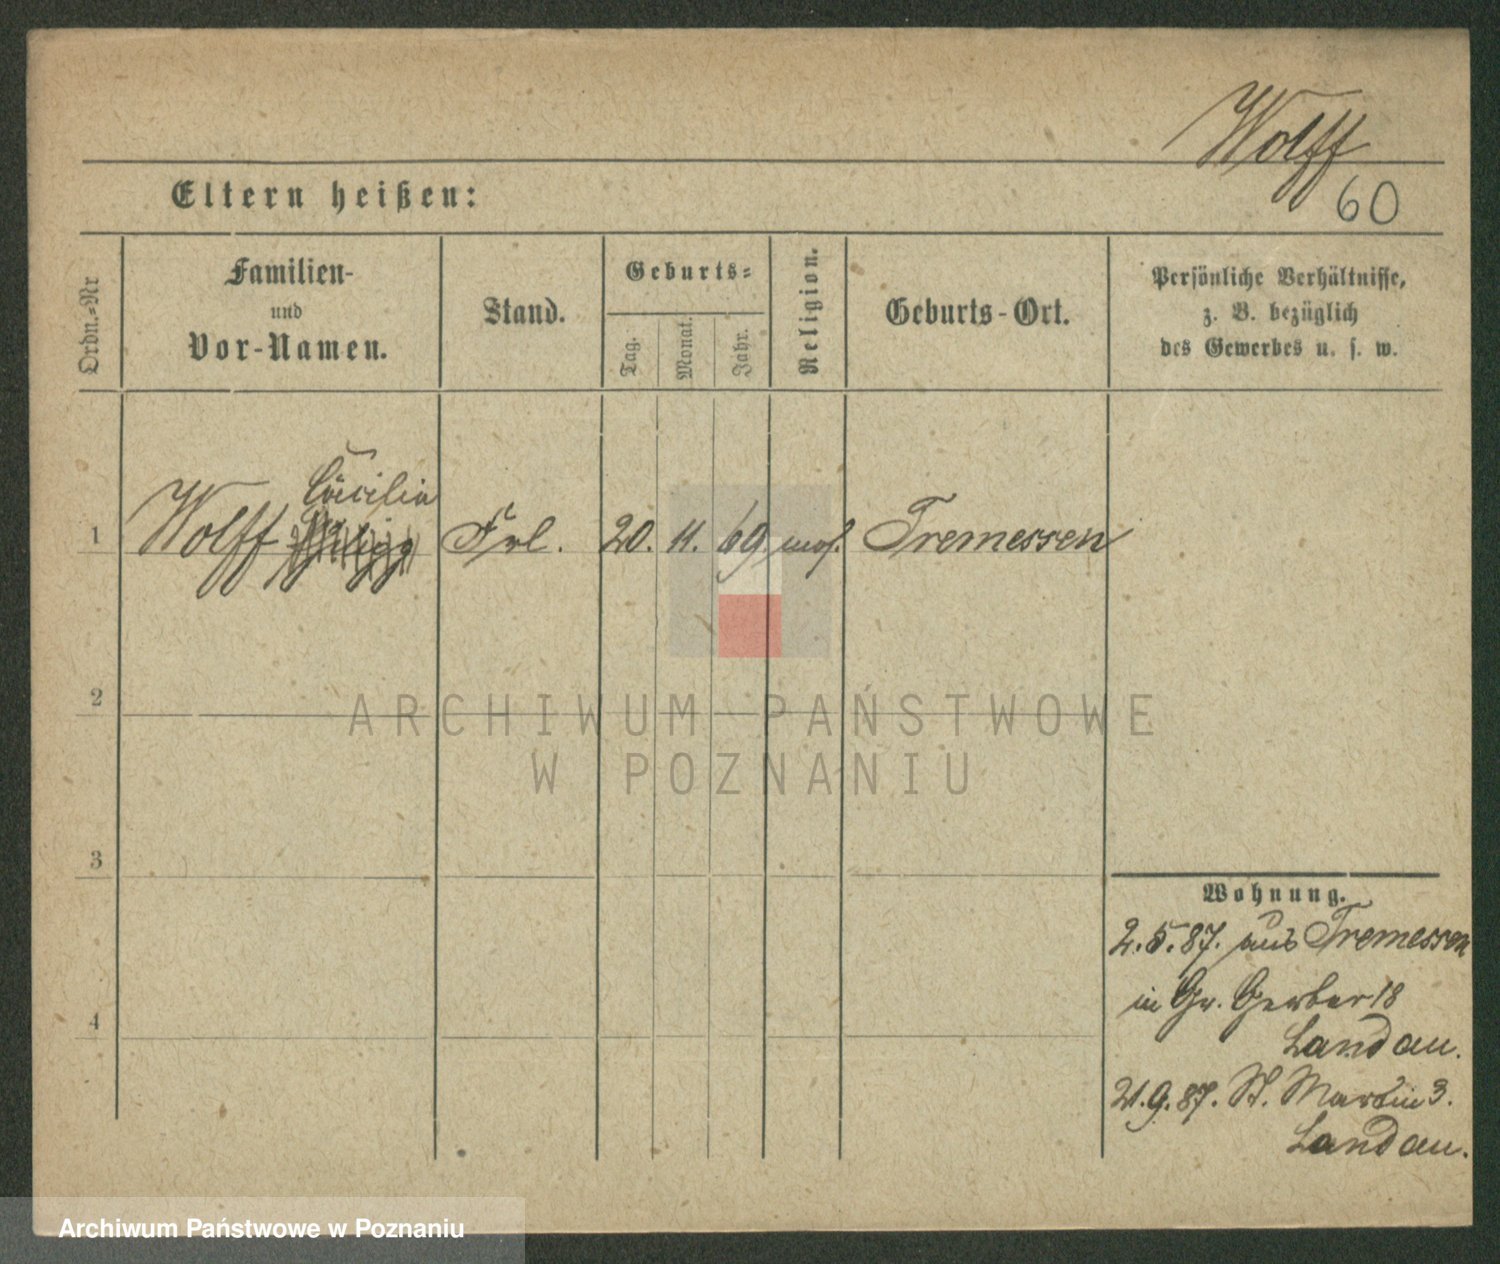 Wolff
Eltern heißen:
60
Ordn.-Nr
Familien-
und
Vor-Namen.
Stand.
Geburts-
Tag.
Monat.
Jahr.
Religion.
Geburts-Ort.
Persönliche Verhältnisse,
z. B. bezüglich
des Gewerbes u. s. w.
Cäcilia
1 Wolff Frl. 20. 11. 69 mos. Tremessen
2
ARCHIWUM PAŃSTWOWE
W POZNANIU
3
Wohnung.
2.5.87. aus Tremessen
in Gr. Gerber 18
4
Landau.
21.9.87. St. Martin 3.
Landau.
Archiwum Państwowe w Poznaniu